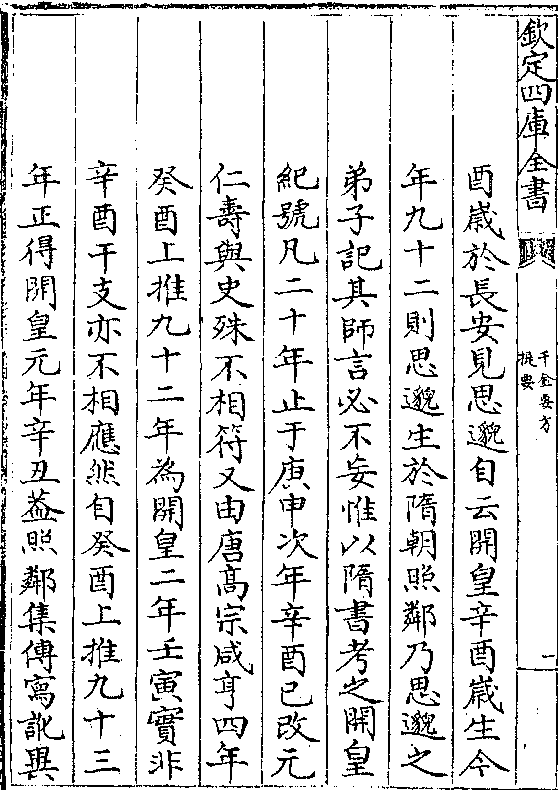 欽定四庫全書
千金要方
提要
一
酉嵗於長安見思邈自云開皇辛酉嵗生今
年九十二則思邈生於隋朝照鄰乃思邈之
弟子記其師言必不妄惟以隋書考之開皇
紀號凡二十年止于庚申次年辛酉已改元
仁壽與史殊不相符又由唐髙宗咸亨四年
癸酉上推九十二年為開皇二年壬寅實非
辛酉干支亦不相應然自癸酉上推九十三
年正得開皇元年辛丑葢照鄰集傳寫訛異